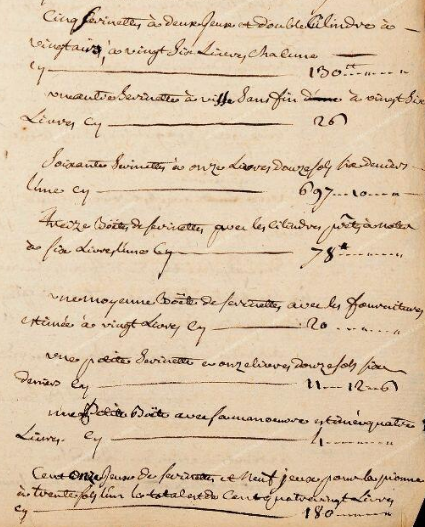 Cinq Serinettes à deux Jeux et double Cilindre à
vingt airs, à vingt Six Livres Chacune
Cy 130tt
une autre Serinette à vis Sans fin à vingt Six
Livres Cy 26
Soixante Serinettes à onze Livres douze Sols Six deniers
l'une Cy 697 10
Treize Boëtes de Serinettes avec les Cilindres prêts à noter
à Six Livres l'une Cy
78tt
une moyenne Boëte de Serinettes avec les fournitures
estimée à vingt Livres Cy 20
une petite Serinette onze livres douze Sols Six
deniers Cy 11 12 6
une Petite Boëte avec Sa manoeuvre estimée quatre
Livres Cy 4
Cent onze Jeux de Serinettes et Neuf jeux pour la pionne
à trente Sols l'un le total est de Cent quatre vingt Livres
Cy 180